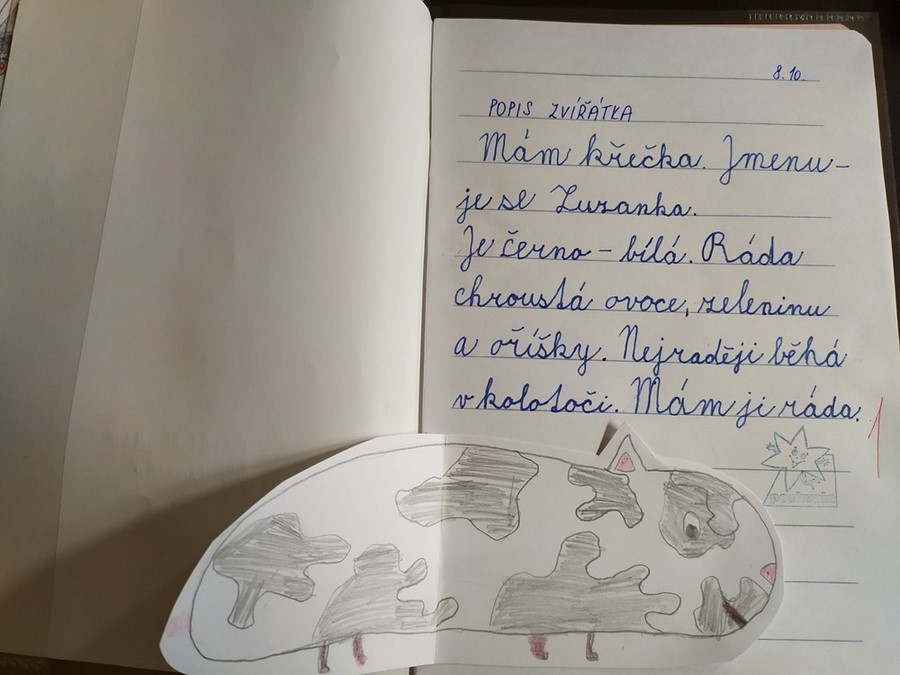 8.10.
POPIS ZVÍŘÁTKA
Mám křečka. Jmenu-
je se Zuzanka.
Je černo - bílá. Ráda
chroustá ovoce, zeleninu
a oříšky. Nejraději běhá
v kolotoči. Mám ji ráda.
1